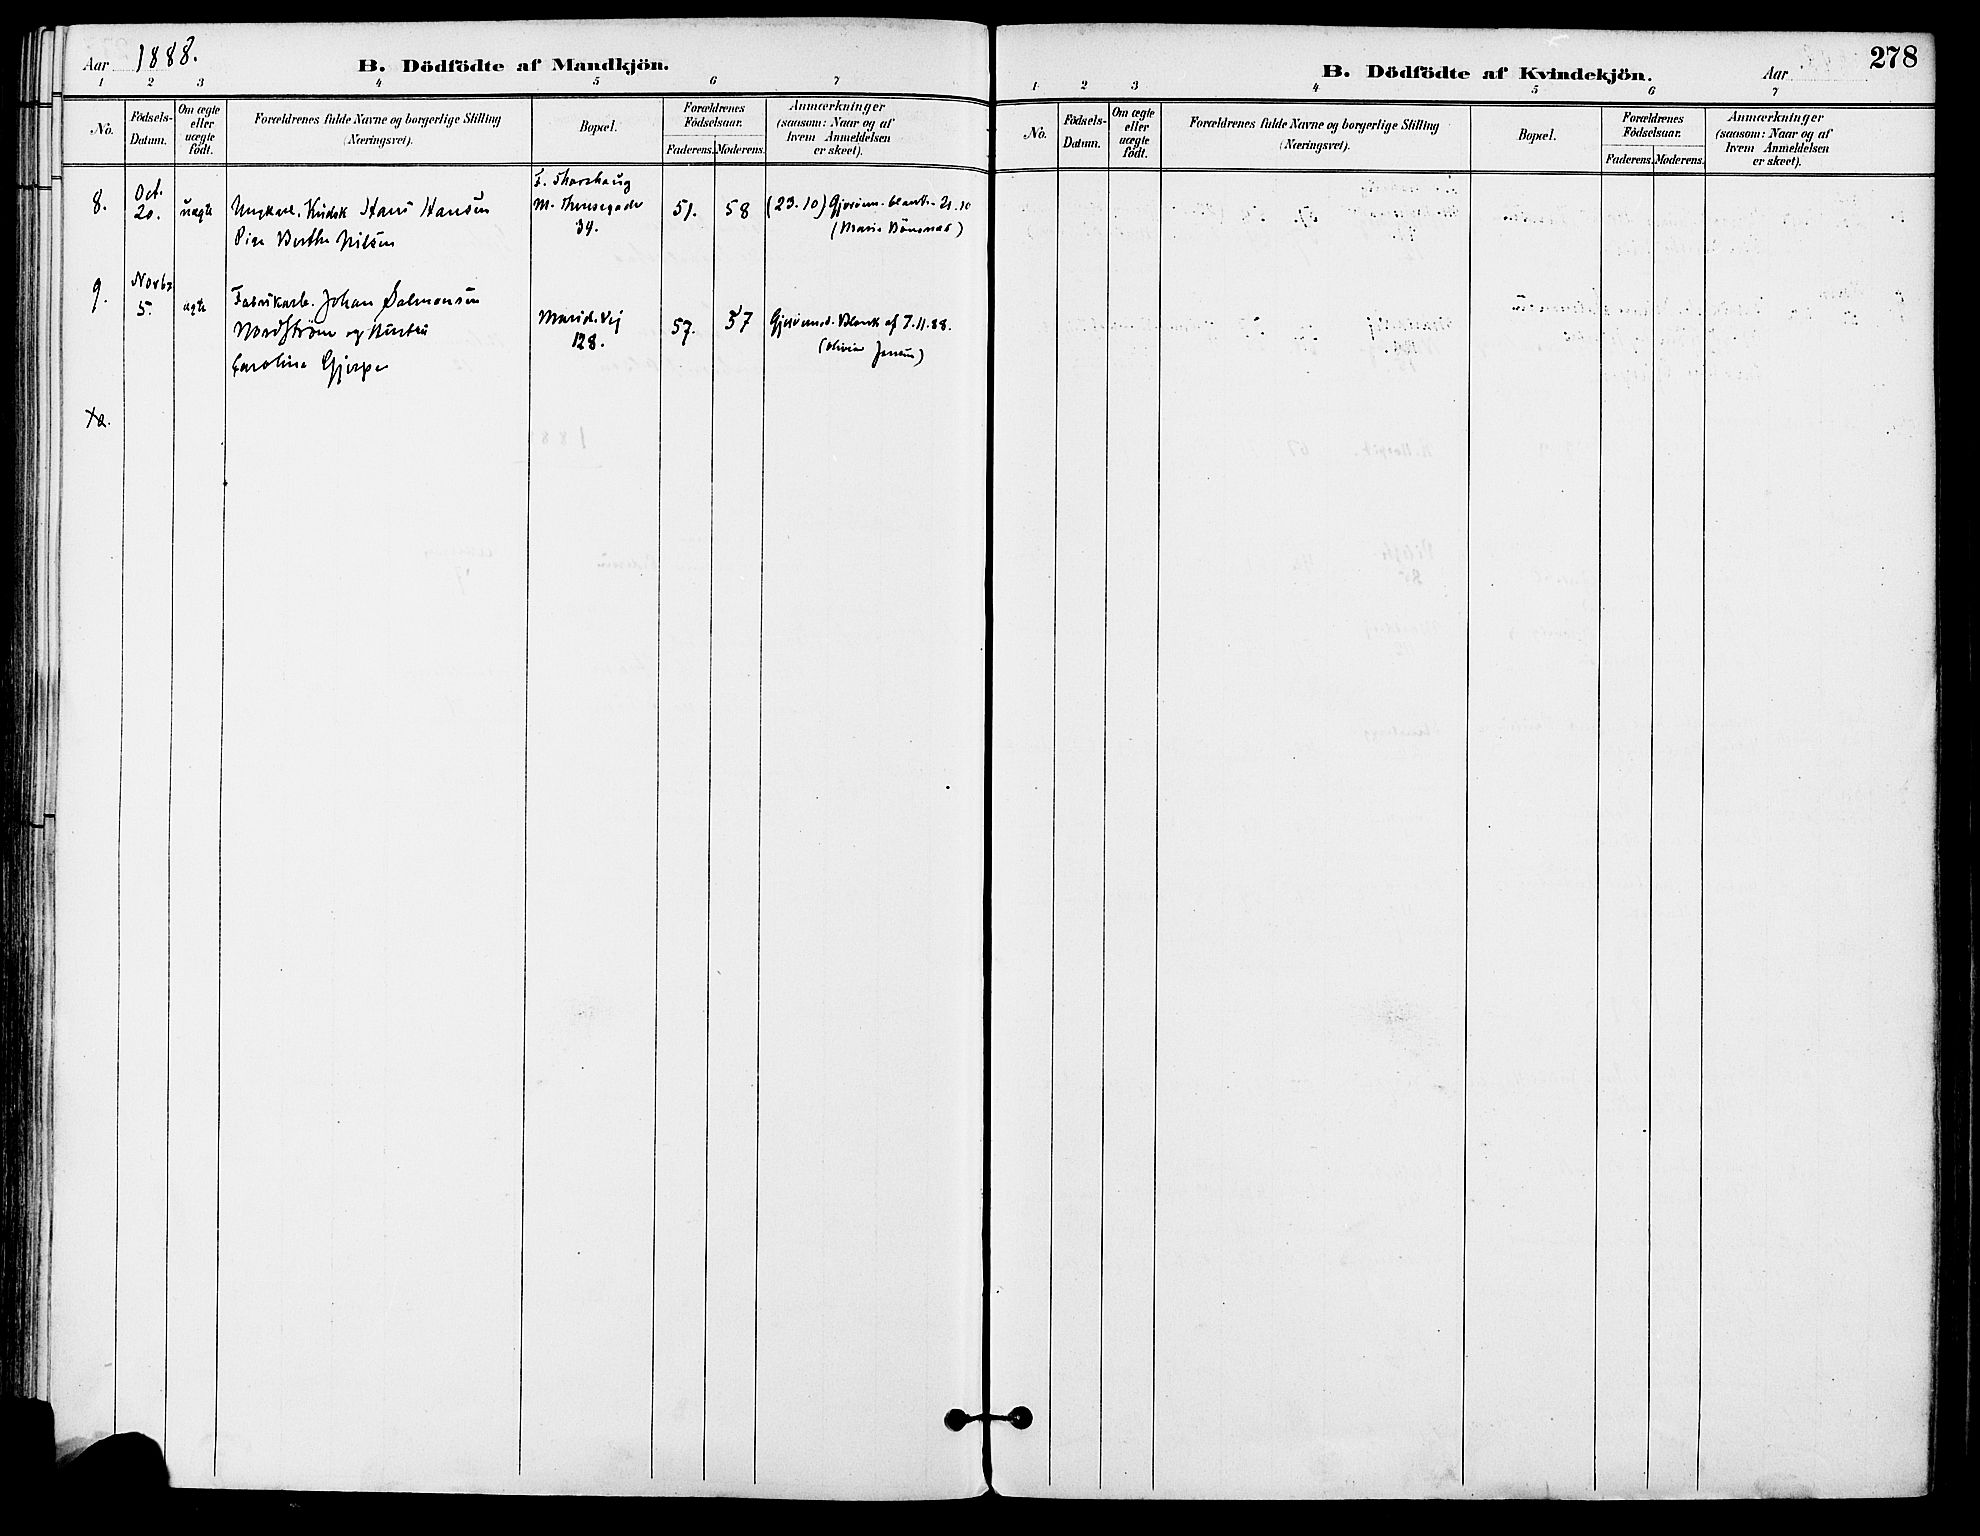 Aar 1888.
B. Dödfödte af Mandkjön.
1 2 3 4 5 6 7
No.
Födsels-Datum.
Om ægte eller uægte födt.
Forældrenes fulde Navne og borgerlige Stilling
(Næringsvei).
Bopæl.
Forældrenes Födselsaar.
Faderens. Moderens.
Anmærkninger
(saasom: Naar og af
hvem Anmeldelsen
er skeet).
8.
Oct.
20.
uægte
Ungkarl. Kudsk Hans Hansen
Pige Berthe Nilsen
F. Thorshaug
M. Thrunegade
34.
51.
58
(23.10) Gjorsm. blank. 21.10
(Marie Bönsnæs)
9.
Novbr
5.
ægte
Fabrikarb. Johan Salmonsen
Nordström og Hustru
Caroline Gjerpe
Marid.Vej
128.
57.
57
Gjorsmd. Blank af 7.11.88.
(Olivia Jensen)
B. Dödfödte af Kvindekjön.
Aar
278
1 2 3 4 5 6 7
No.
Födsels-Datum.
Om ægte eller uægte födt.
Forældrenes fulde Navne og borgerlige Stilling
(Næringsvei).
Bopæl.
Forældrenes Födselsaar.
Faderens. Moderens.
Anmærkninger
(saasom: Naar og af
hvem Anmeldelsen
er skeet).